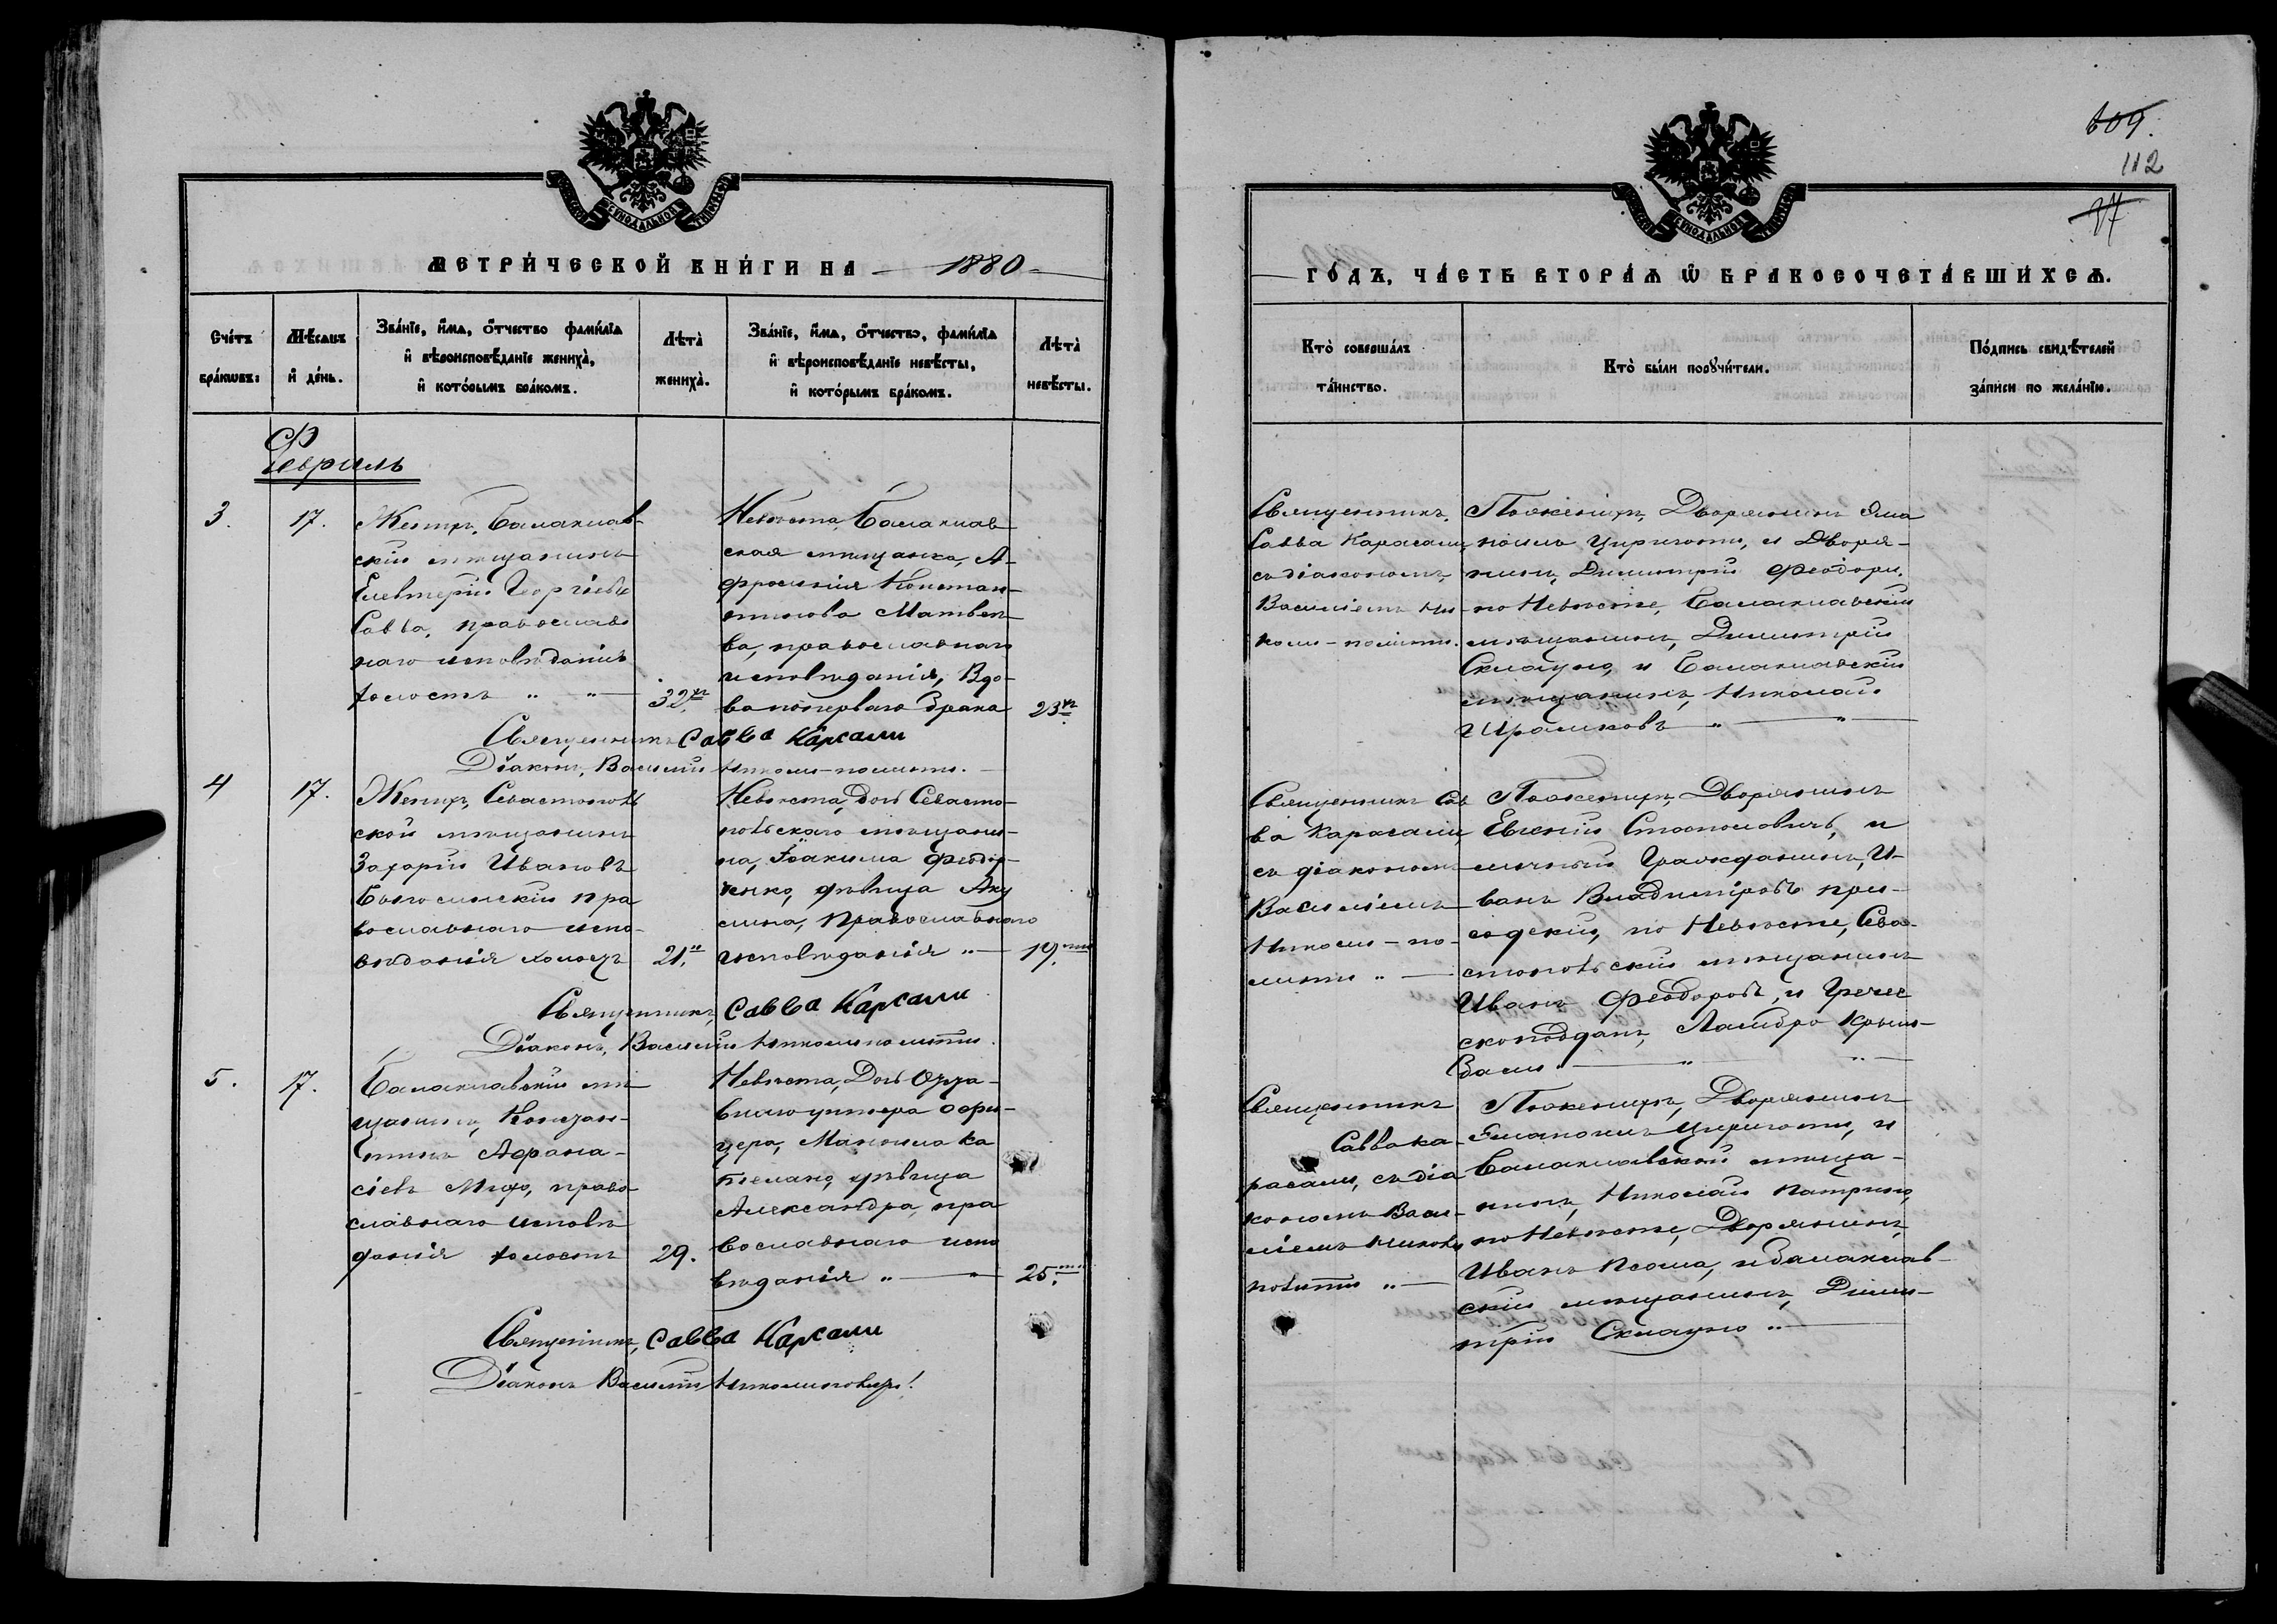 МЕТРИ́ЧЕСКОЙ КНИ́ГИ НА 1880
Сче́тъ бра́ковъ:
Мѣ́сяцъ и҆ де́нь.
Зва́нїе, и҆́мѧ, ѻ҆́тчество фами́лїѧ
и҆ вѣроисповѣ́данїе жениха̀,
и҆ кото́рымъ бра́комъ.
Лѣта̀ жениха̀.
Зва́нїе, и҆́мѧ, ѻ҆́тчество, фами́лїѧ
и҆ вѣроисповѣ́данїе невѣ́сты,
и҆ кото́рымъ бра́комъ.
Лѣта̀ невѣ́сты.
Февраль
3.
17.
Женихъ, Балаклав-
скій мѣщанинъ
Елевтерій Георгіевъ
Савва, православ
наго исповѣданія
холостъ " "
32
Невѣста, Балаклав
ская мѣщанка, А-
фросинія Констан-
тинова Матвее
ва, православнаго
исповѣданія, Вдо-
ва поперваго брака
23
Священникъ Савва Карсали
Діаконъ, Василій Николи-полити.
4
17.
Женихъ, Севастополь
ской мѣщанинъ
Захарій Ивановъ
пра
вославнаго испо-
вѣданія холостъ
21.
Невѣста, Дочь Севасто-
польскаго мѣщани-
на, Іоакима Феодор-
енко, дѣвица Аку
лина, Православнаго
исповѣданія "
19.
Священникъ, Савва Карсали
Діаконъ, Василій Николиполити.
5.
17.
Балаклавскій мѣ
щанинъ, Констан-
тинъ Афана-
сіевъ право
славнаго исповѣ
данія холостъ
29.
Невѣста, Дочь Отста
внаго унтера офи-
цера, Мануила Ка
дѣвица
Александра, пра
вославнаго испо
вѣданія "
25.
Священникъ, Савва Карсали
Діаконъ Василій Николиполити.
609.
112
37
ГО́ДЪ, ЧА́СТЬ ВТОРА́Ѧ Ѽ БРАКОСОЧЕТА́ВШИХСѦ.
Кто̀ соверша́лъ
та́инство.
Кто̀ бы́ли порꙋчи́тели.
По́дпись свидѣ́телей
за́писи по жела́нїю.
Священникъ
Савва Карасали,
съ діакономъ
Василіемъ Ни-
коли-полити.
Поженихѣ, Дворянинъ Эма
нуилъ Цириготи, и Дворя-
нинъ, Димитрій Феодори,
по Невѣстѣ, Балаклавскій
мѣщанинъ, Димитрій
Склауно, и Балаклавскій
мѣщанинъ, Николай
Ираликовъ " "
Священникъ Сав
ва Карасали,
съ діакономъ
Василіемъ
Николи-по-
лити "
Поженихѣ, Дворянинъ
Евгеній и
личный Гражданинъ, И-
ванъ Владиміровъ
по Невѣстѣ, Сева-
стопольскій мѣщанинъ
Иванъ Феодоровъ, и Гречес
скоподдан,
"
Священникъ
Савва Ка-
расали, съ діа
кономъ Васи-
ліемъ Николи
полити "
Поженихѣ, Дворянинъ
Эмануилъ Цириготи, и
Балаклавской мѣща-
нинъ, Николай
по Невѣстѣ, Дворянинъ,
Иванъ Псома, и балаклав-
скій мѣщанинъ, Дими-
трій Склауно "